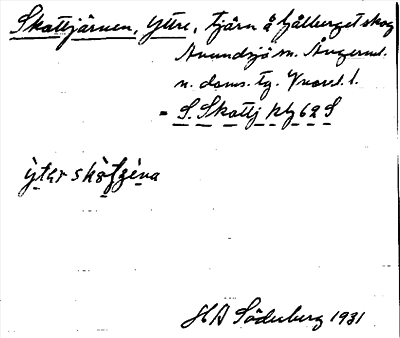 Skottjärnen, Yttre, tjärn å Gålberget skog
Anundsjö sn. Ångerml.
n. doms. tg. Vnorl. l.
= S. Skottj kbl 62 S
ỳtər skòtʃæ̀ṇa
HA Söderberg 1931